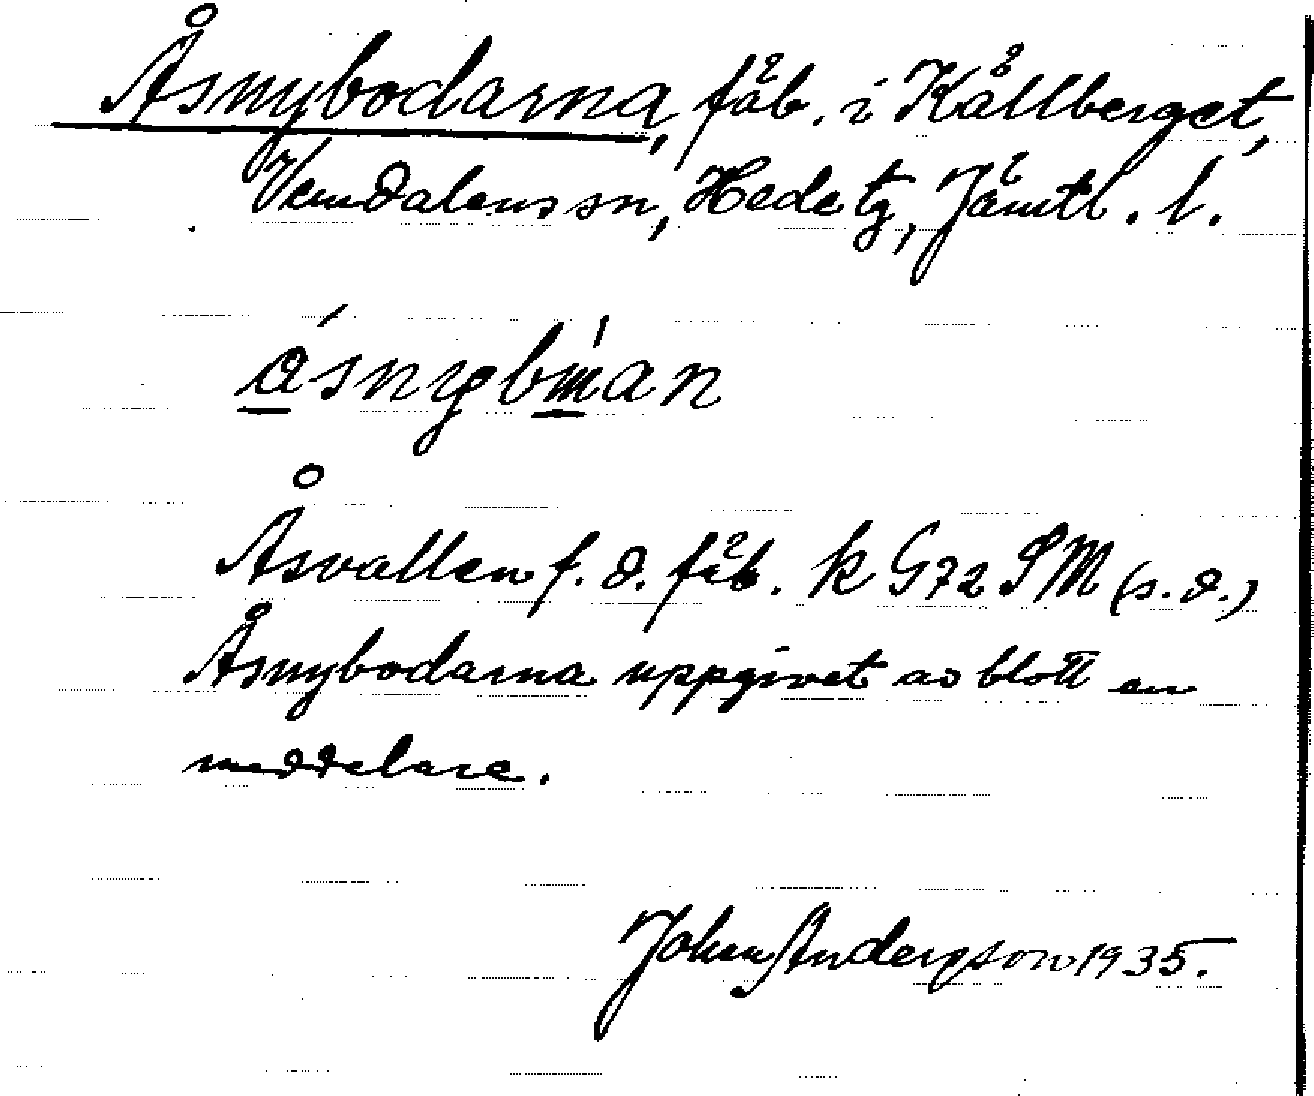 Åsnybodarna, fäb. i Kållberget,
Vemdalens sn, Hede tg, Jämtl. l.
Åsvallen f. d. fäb. k G72 SM (s. d.)
Åsnybodarna uppgivet av blott en
meddelare.
John Andersson 1935.